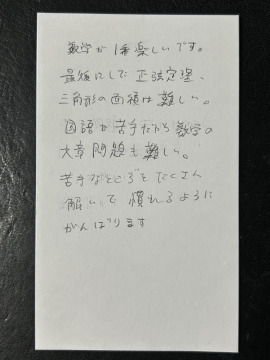 数学が1番楽しいです。
最後にして正弦定理、
三角形の面積は難しい。
国語が苦手だから数学の
文章問題も難しい。
苦手なところをたくさん
解いて慣れるように
がんばります